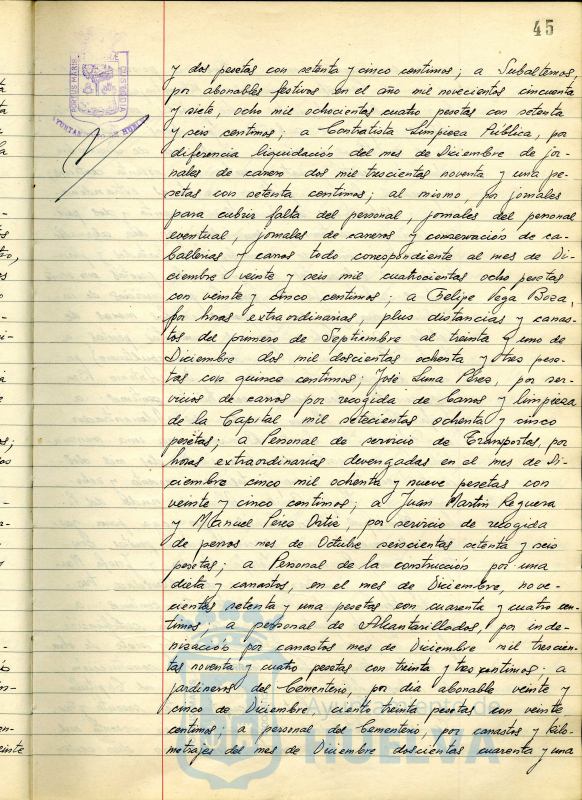 45
PORTUS MARIS
CUSTODIA
y dos pesetas con setenta y cinco centimos; a Subalternos,
por abonables festivos en el año mil novecientos cincuenta
y siete, ocho mil ochocientas cuatro pesetas con setenta
y seis centimos; a Contratista Limpieza Pública, por
diferencia liquidación del mes de Diciembre de jor-
nales de carero dos mil trescientas noventa y una pe-
setas con setenta centimos; al mismo por jornales
para cubrir falta del personal, jornales del personal
eventual, jornales de careros y conservación de ca-
ballerias y carros todo correspondiente al mes de Di-
ciembre veinte y seis mil cuatrocientas ocho pesetas
con veinte y cinco centimos; a Felipe Vega Boza,
por horas extraordinarias, plus distancias y canas-
tos del primero de Septiembre al treinta y uno de
Diciembre dos mil doscientas ochenta y tres pese-
tas con quince centimos; José Luna Pérez, por ser-
vicios de carros por recogida de barros y limpieza
de la Capital mil setecientas ochenta y cinco
pesetas; a Personal de servicio de Transportes, por
horas extraordinarias devengadas en el mes de Di-
ciembre cinco mil ochenta y nueve pesetas con
veinte y cinco centimos; a Juan Martin Reguera
y Manuel Pérez Ortiz, por servicio de recogida
de perros mes de Octubre seiscientas setenta y seis
pesetas; a Personal de la construcción por una
dieta y canastos, en el mes de Diciembre, nove-
cientas setenta y una pesetas con cuarenta y cuatro cen-
timos; a personal de Alcantarillados, por inde-
nización por canastos mes de Diciembre mil trescien-
tas noventa y cuatro pesetas con treinta y tres centimos; a
jardineros del Cementerio, por dia abonable veinte y
cinco de Diciembre, ciento treinta pesetas con veinte
centimos; a personal del Cementerio por canastos y kilo-
metrajes del mes de Diciembre doscientas cuarenta y una
Ayuntamiento de
HUELVA